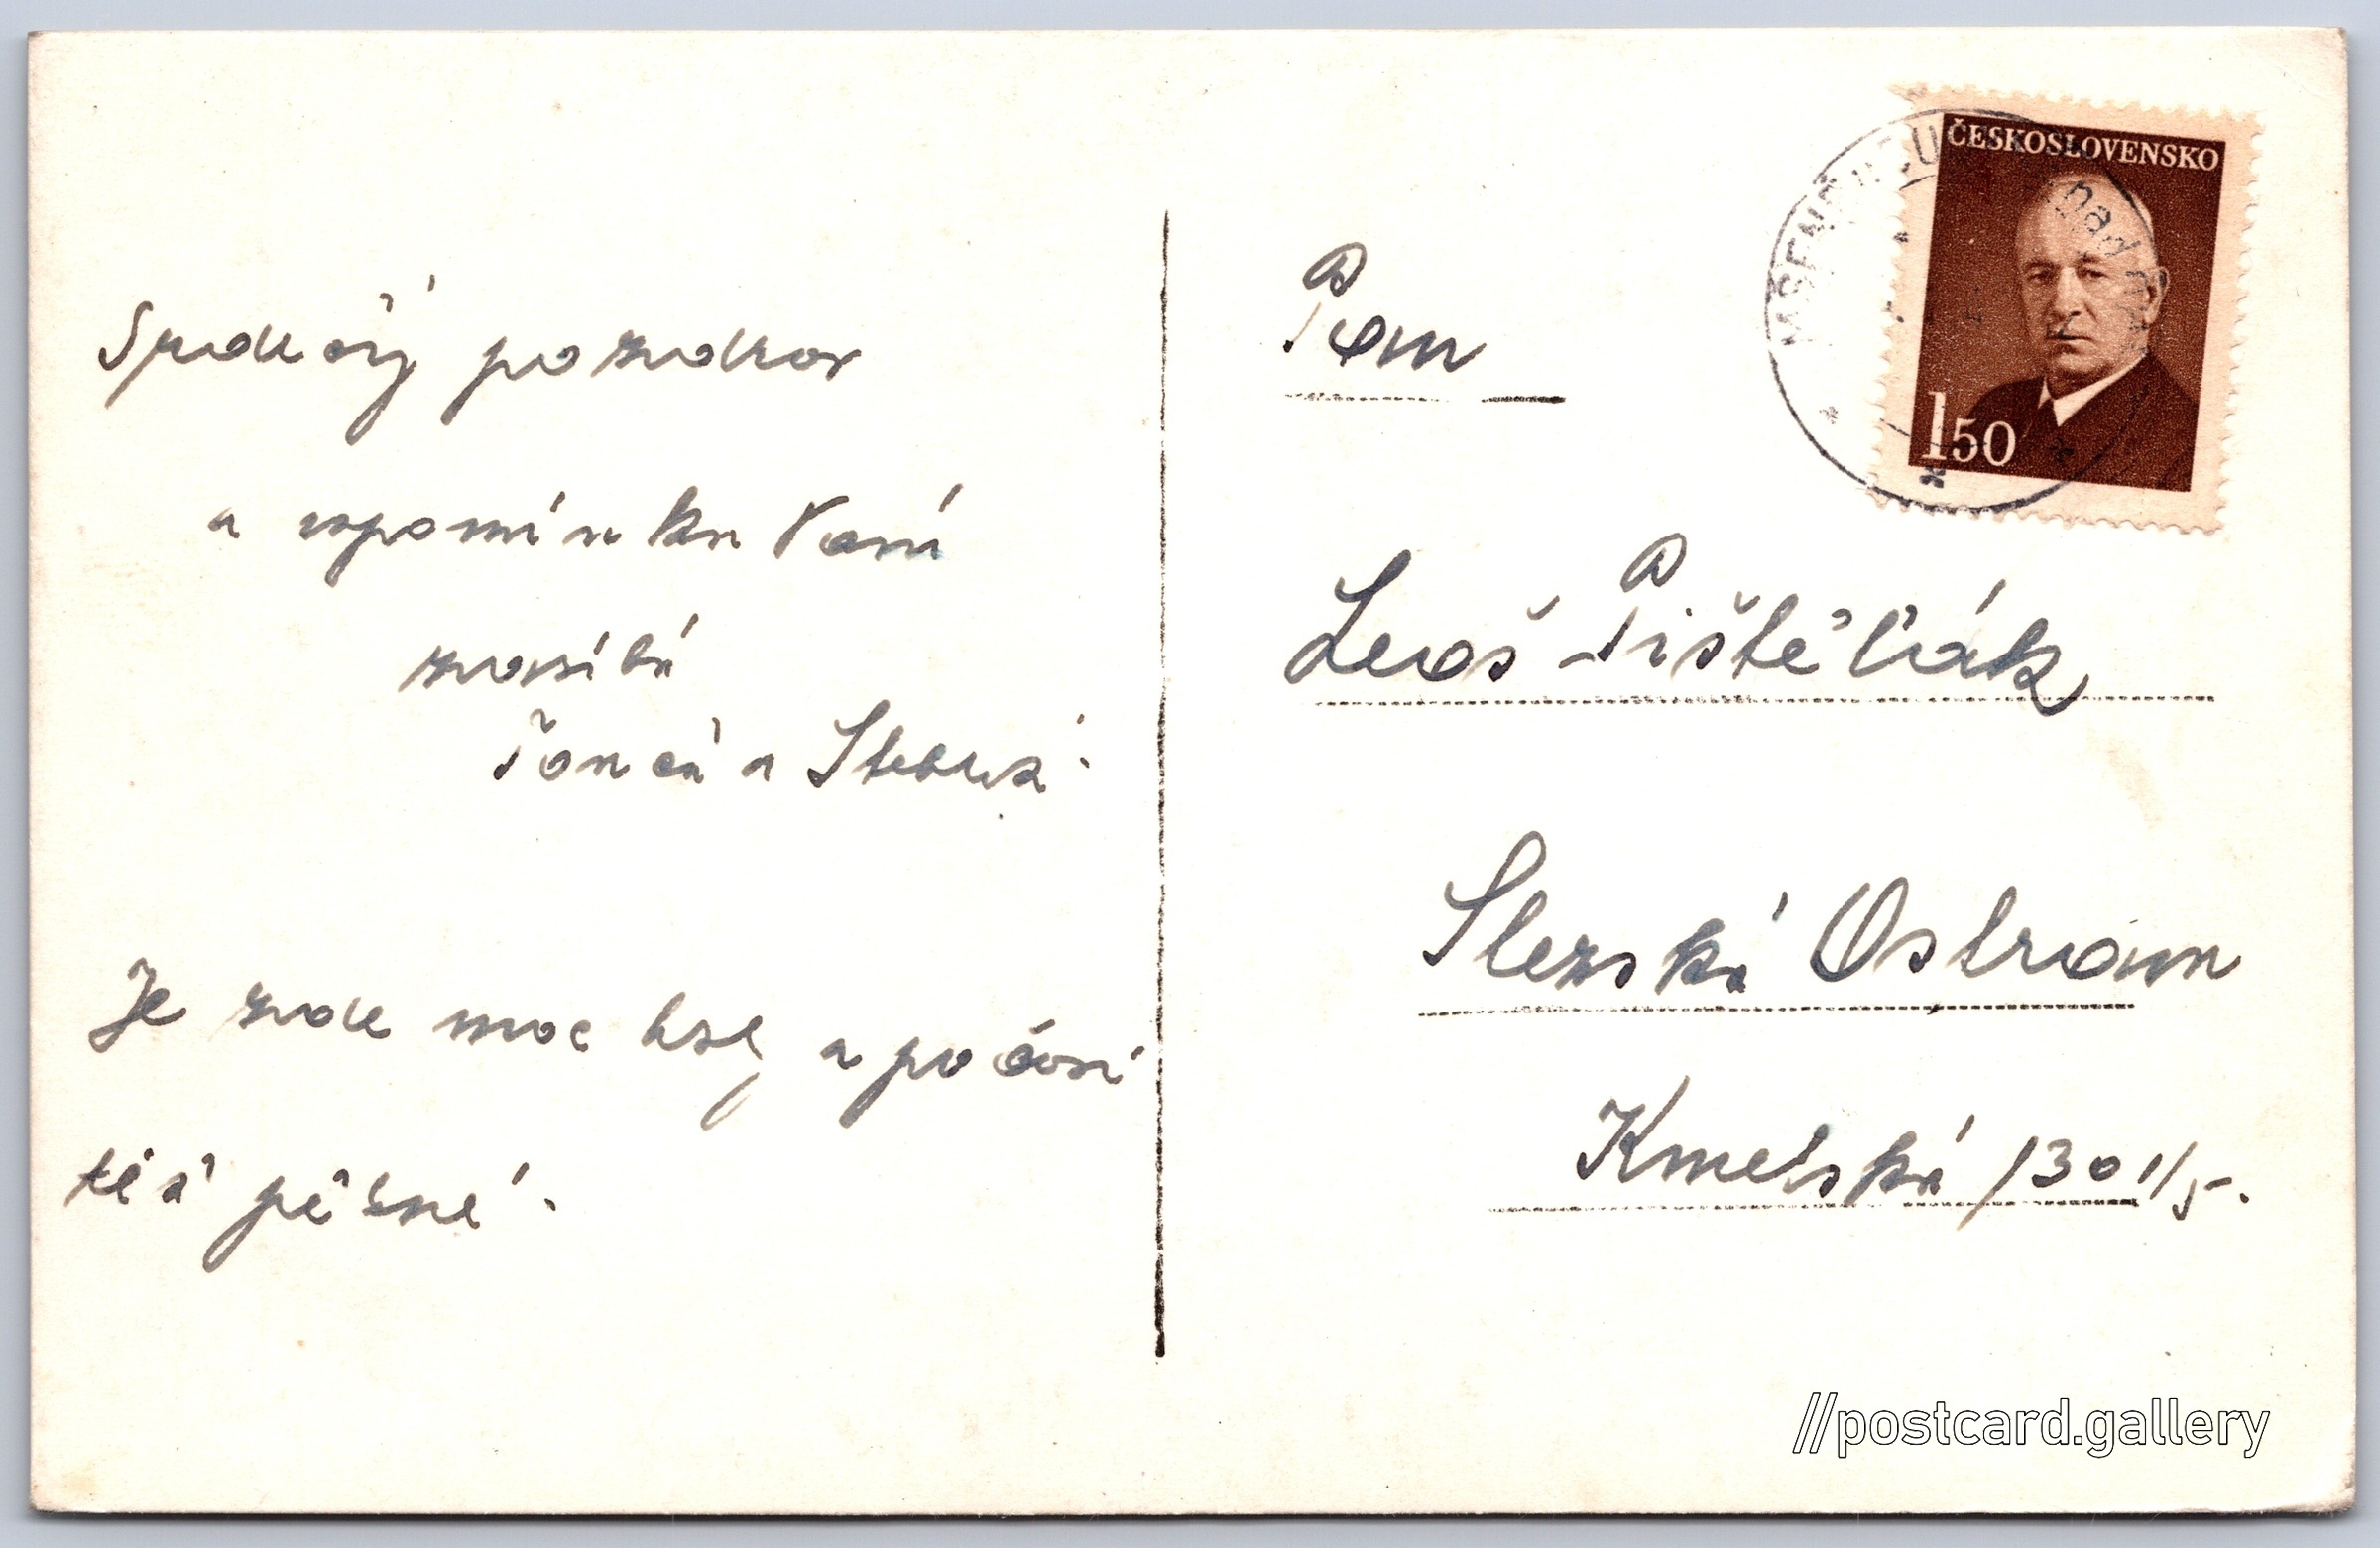 Srdečný pozdrav
a vzpomínku Vám
zasílá
Tonča a
Je zde moc hezky a počasí
též pěkné.
Pan
Leoš Pištělák
Slezská Ostrava
Kmetská /301/5.
ČESKOSLOVENSKO
1 50
//postcard.gallery